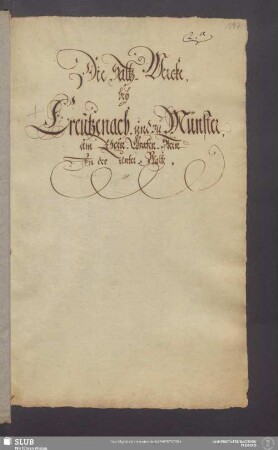 Die Saltz-Wercke,
bey
Creutzenach, und zu Münster,
am Rhein Grafen Stein
In der unter Pfaltz.
SLUB
Wir führen Wissen.